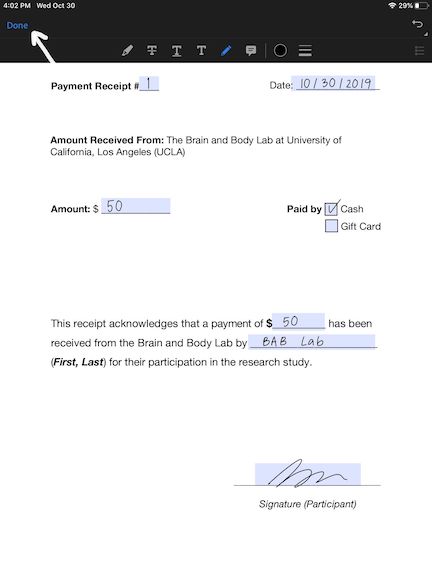 4:02 PM Wed Oct 30 29%
Done
T T T
Payment Receipt # 1 Date: 10/30/2019
Amount Received From: The Brain and Body Lab at University of
California, Los Angeles (UCLA)
Amount: $ 50 Paid by Cash
Gift Card
This receipt acknowledges that a payment of $ 50 has been
received from the Brain and Body Lab by BAB Lab
(First, Last) for their participation in the research study.
Signature (Participant)